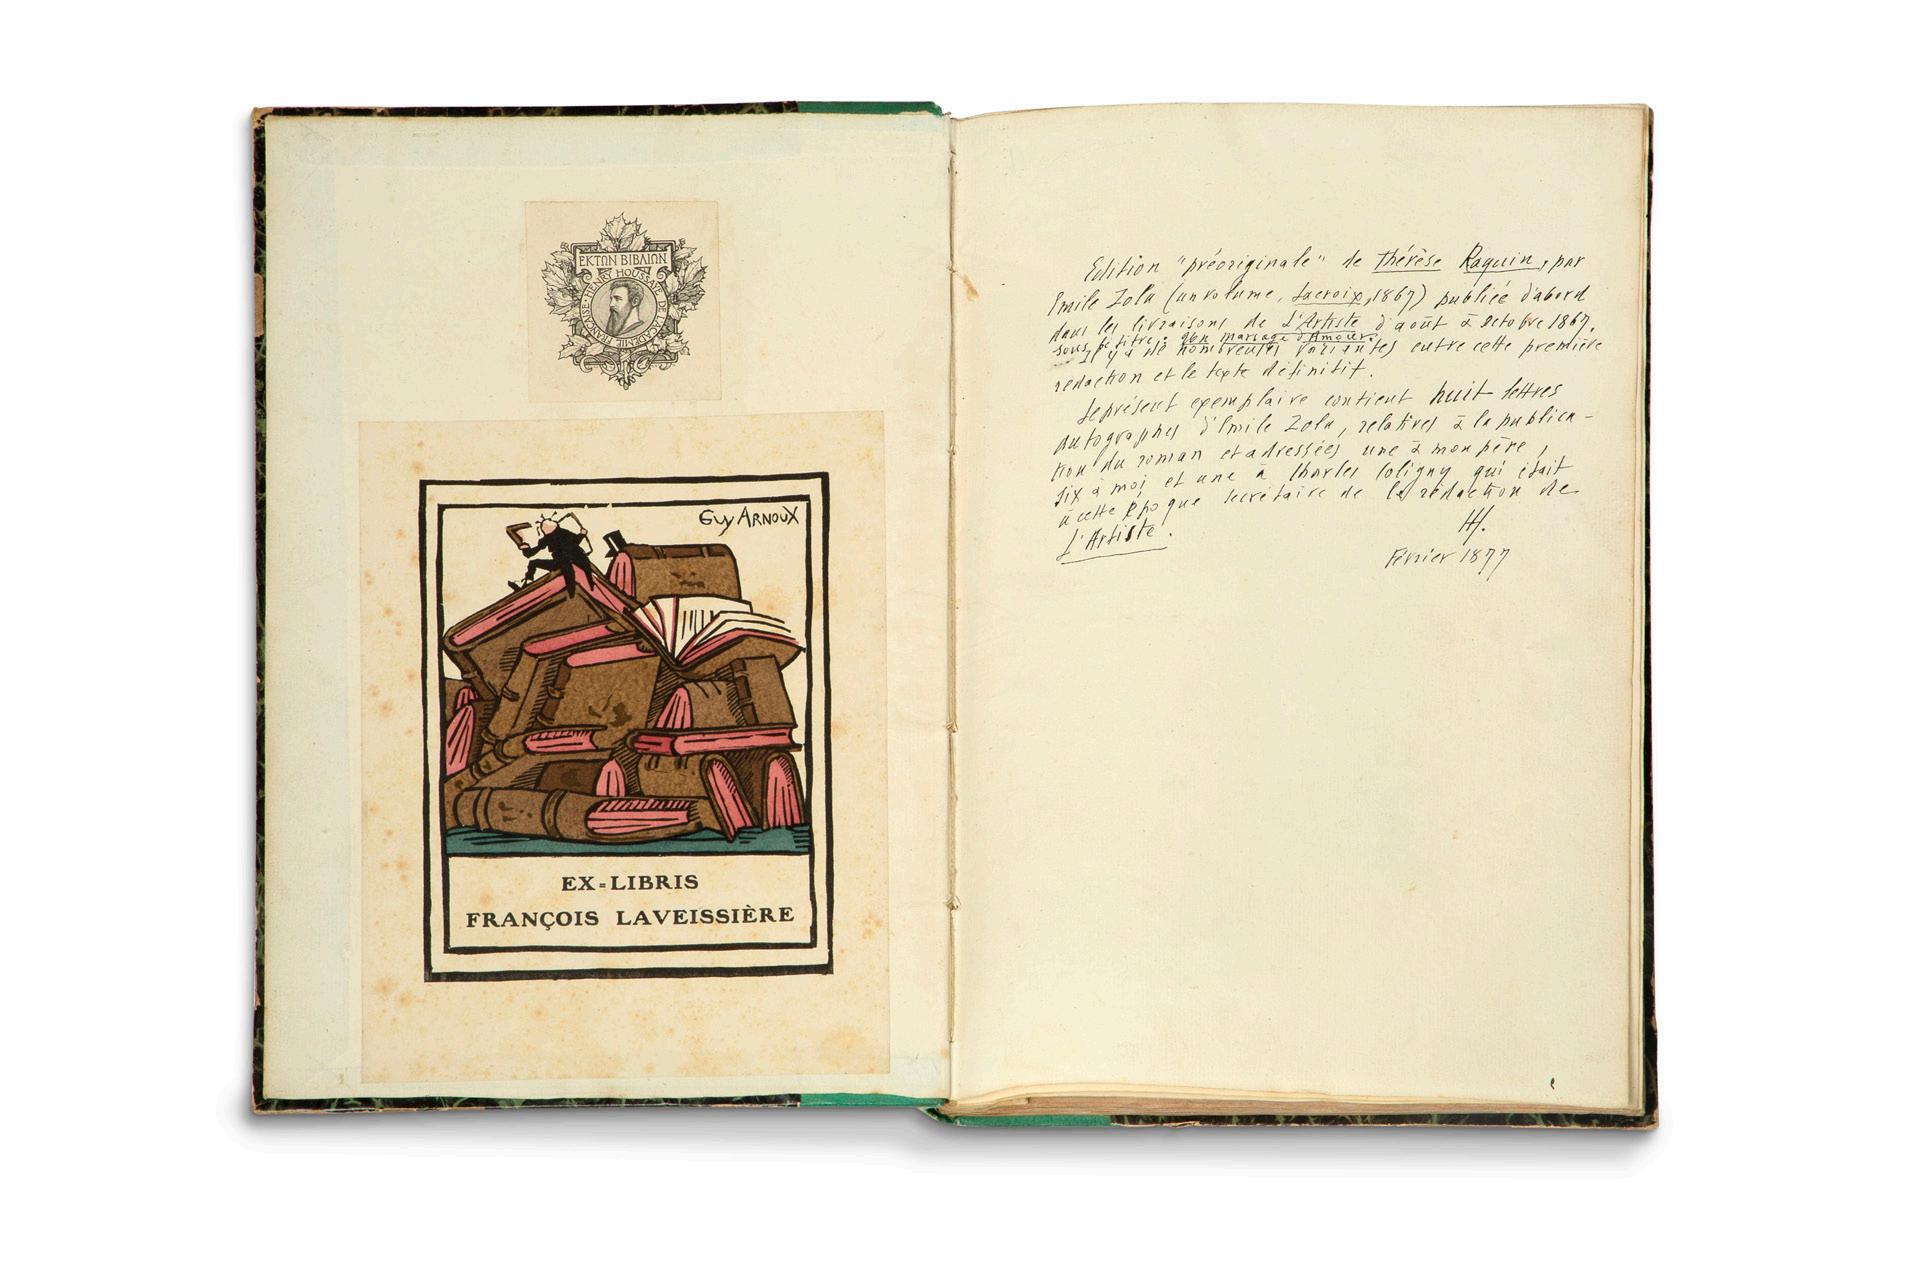 ΕΚΤΩΝ ΒΙΒΛΙΩΝ
HENRY HOUSSAYE DE L'ACADEMIE FRANÇAISE
GUY ARNOUX
EX=LIBRIS
FRANÇOIS LAVEISSIÈRE
Edition "préoriginale" de Thérèse Raquin, par
Emile Zola (un volume, Lacroix, 1867) publiée d'abord
dans les livraisons de L'Artiste d'août à octobre 1867.
sous le titre: Un mariage d'Amour.
Il y a de nombreuses variantes entre cette première
rédaction et le texte définitif.
Le présent exemplaire contient huit lettres
autographes d'Emile Zola, relatives à la publica-
tion du roman et adressées une à mon père,
six à moi et une à Charles Coligny qui était
à cette époque secrétaire de la rédaction de
L'Artiste.
HH.
Février 1877